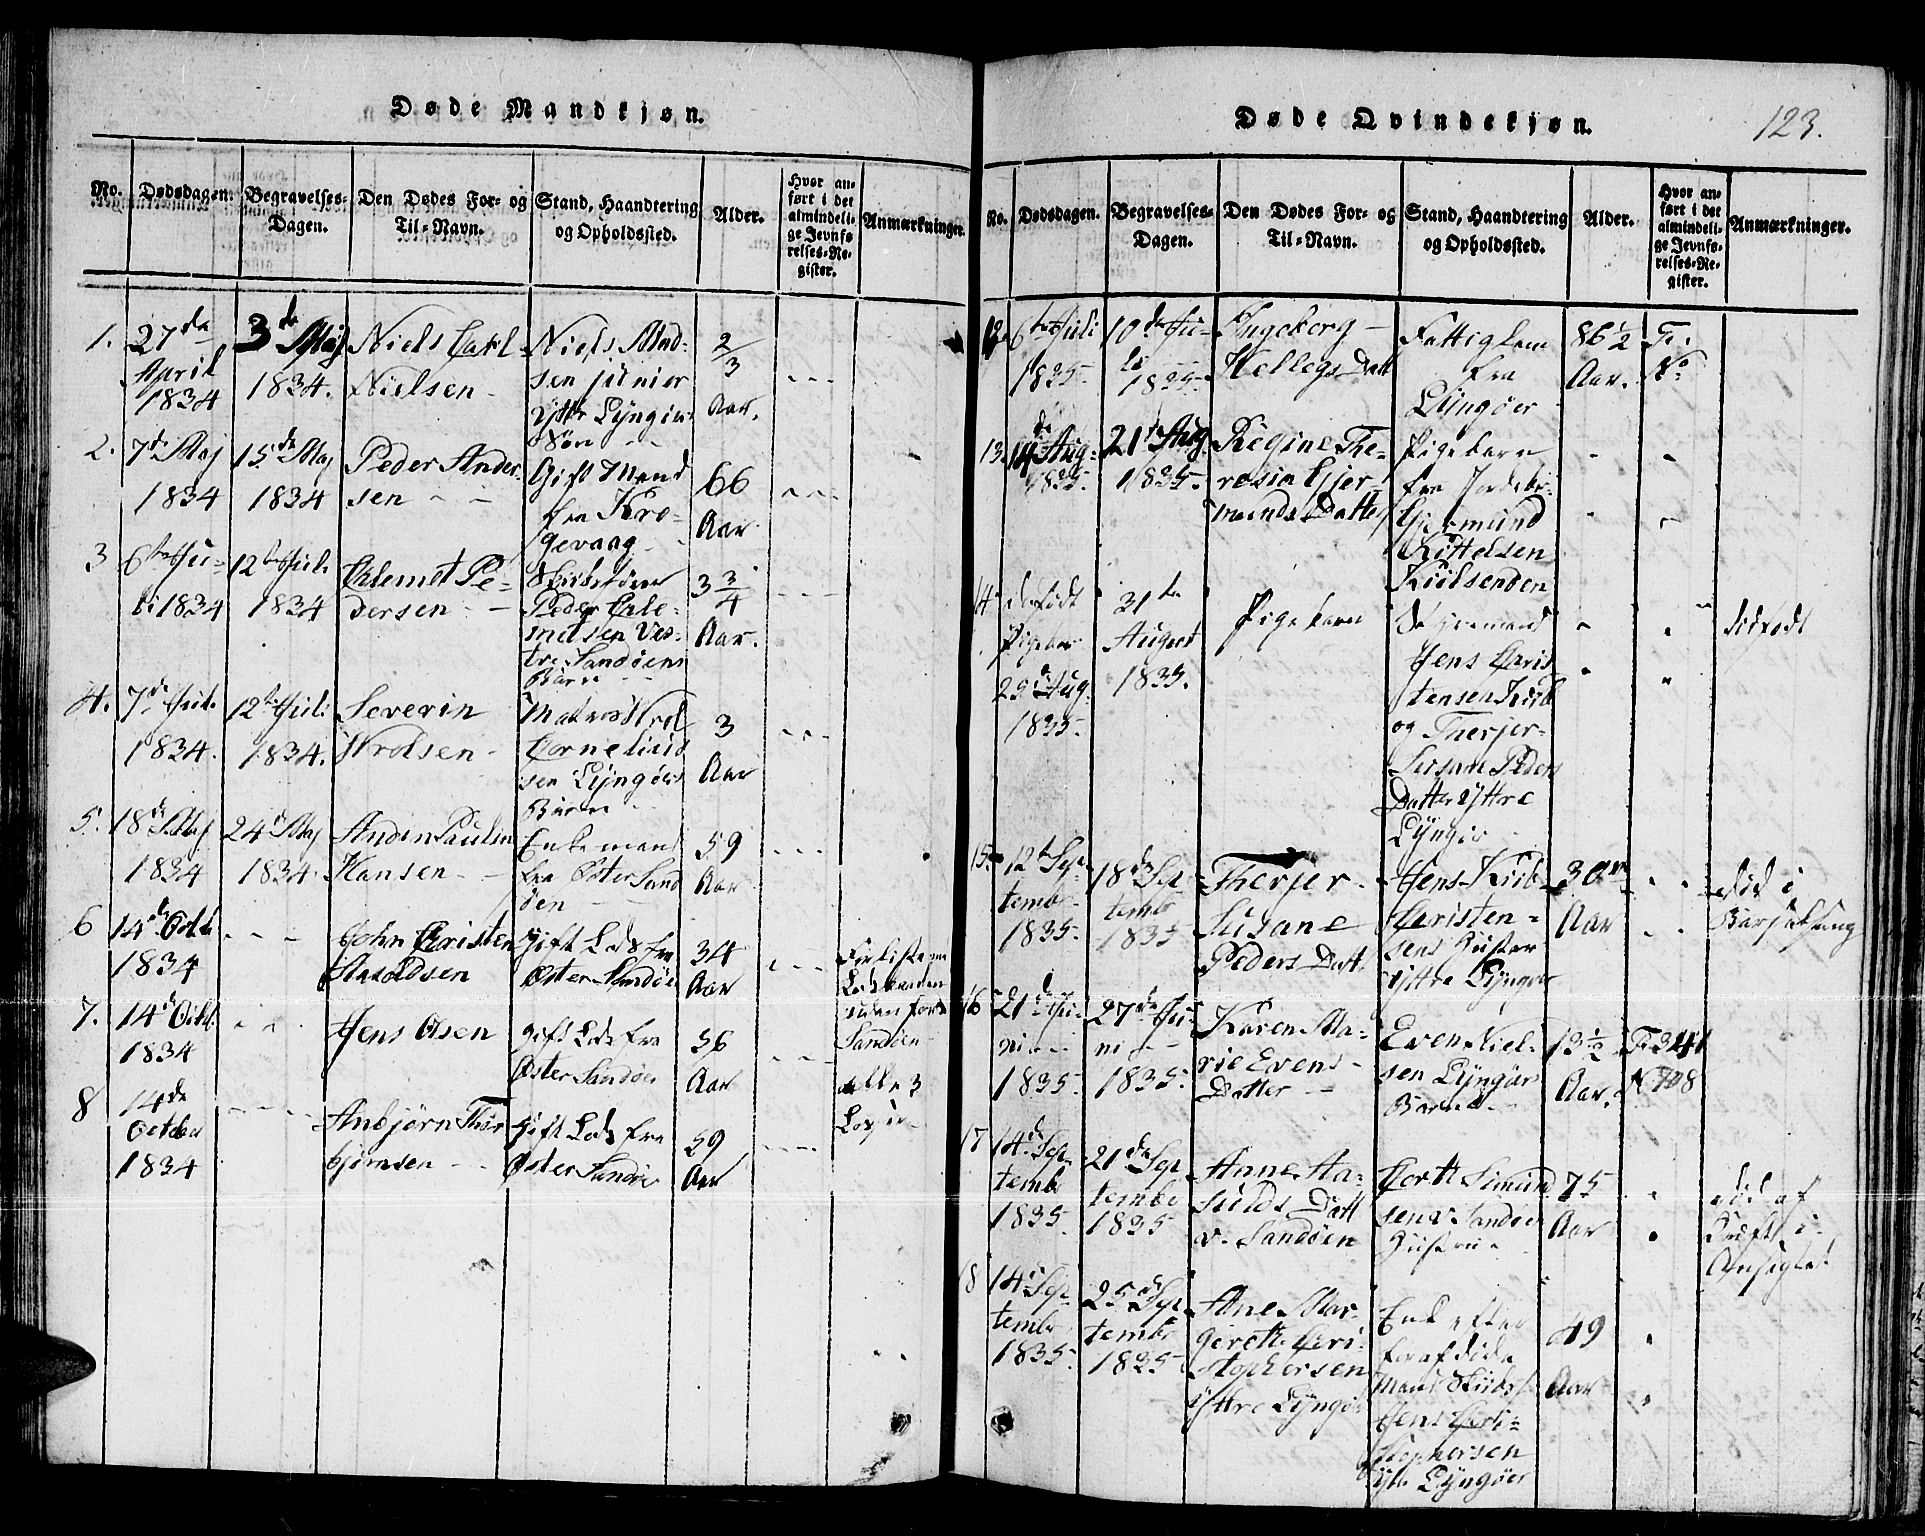 Døde Mandkjøn.
No.
Dødsdagen.
Begravelses-
Dagen.
Den Dødes For- og
Til-Navn.
Stand, Haandtering
og Opholdssted.
Alder.
Hvor an-
ført i det
almindeli-
ge Jevnfø-
relses-Re-
gister.
Anmærkninger.
1.
27de
April
1834
3de Maj
1834.
Niels Carl
Nielsen
Niels Mad-
sen junier
Yttre Lyngøers
Søn
2/3
Aar.
2.
7de Maj
1834
15de Maj
1834
Peder Ander-
sen
Gift Mand
fra Kro-
gevaag
66
Aar
3
6te Ju-
li 1834
12te Juli
1834
Erlemdt Pe-
dersen
Peder Erle-
mdsen Ves-
tre Sandøens
Barn
3 3/4
Aar.
4.
7de Juli
1834.
12te Juli
1834.
Severin
Wrolsen
Matros Wrol
Cornelius
sen Lyngøers
Barn
3
Aar
5.
18de Maj
1834
24de Maj
1834
Anden Paulsen
Hansen
Enkemand
fra Øster Sand
øen
59
Aar
6
14de Octb
1834
John Cristen
Gift Lods fra
Øster Sandøe
34
Aar
Forliste
uden for
Sandøen
alle 3
7.
14de Octb.
1834
Jens Olsen
gift Lods fra
Øster Sandøe
56
Aar
8
14de
October
1834
Anbjørn Thor
bjørnsen
Gift Lods fra
Øster Sandøe
59
Aar
Døde Qvindekjøn.
123.
No.
Dødsdagen.
Begravelses-
Dagen.
Den Dødes For- og
Til-Navn.
Stand, Haandtering
og Opholdssted.
Alder.
Hvor an-
ført i det
almindeli-
ge Jevnfø-
relses-Re-
gister.
Anmærkninger.
12
6te Juli
1835.
10de Ju-
li
1835.
Ingeborg
Hellegs Datt
Fattiglem
fra
Lyngøer
86 1/2
Aar.
F.
No
13.
14de Aug.
1835.
21de Aug
1835.
Regine The-
resia Gjer-
munds Datter
Pigebarn
fra
Gjermund
Kittelsen
Kiilsenden
14
dødfødt
Pigebarn
29de Aug.
1835.
31te
August
1835.
Pigebarn
Jens Cris
tensen Kiib
og Therjer-
Susane Peders
Datter Yttre
Lyngør
dødfødt
15
12te Sep
tembr
1835.
18de Sep
tembr
1835
Therjer
Susane
Peders Datt.
Jens Kiib
Cristen-
sens Hustru
Yttre Lyngør
30
Aar
død i
Barselseng
16
21de Ju-
ni
1835.
27de Ju-
ni
1835.
Karen Ma-
rie Evens
Datter
Even Niel-
sen Lyngørs
Barn
13 1/2
Aar.
17
14de Sep
tembr
1835.
21de Sep
tembr
1835
Anne Aa-
sulds Datt
v. Sandøen
Cort Simund
sen v. Sandøen
Hustru
75
Aar
død af
Kræft i
Ansigtet
18
14de Sep
tembr
1835.
25de Sep
tembr
1835
Ane Mar-
grethe Cri-
stophersen
Yttre Lyngør
Enke efter
forafdøde
Mand
Jens Cri-
stophersen
Yttre Lyngøer
49
Aar